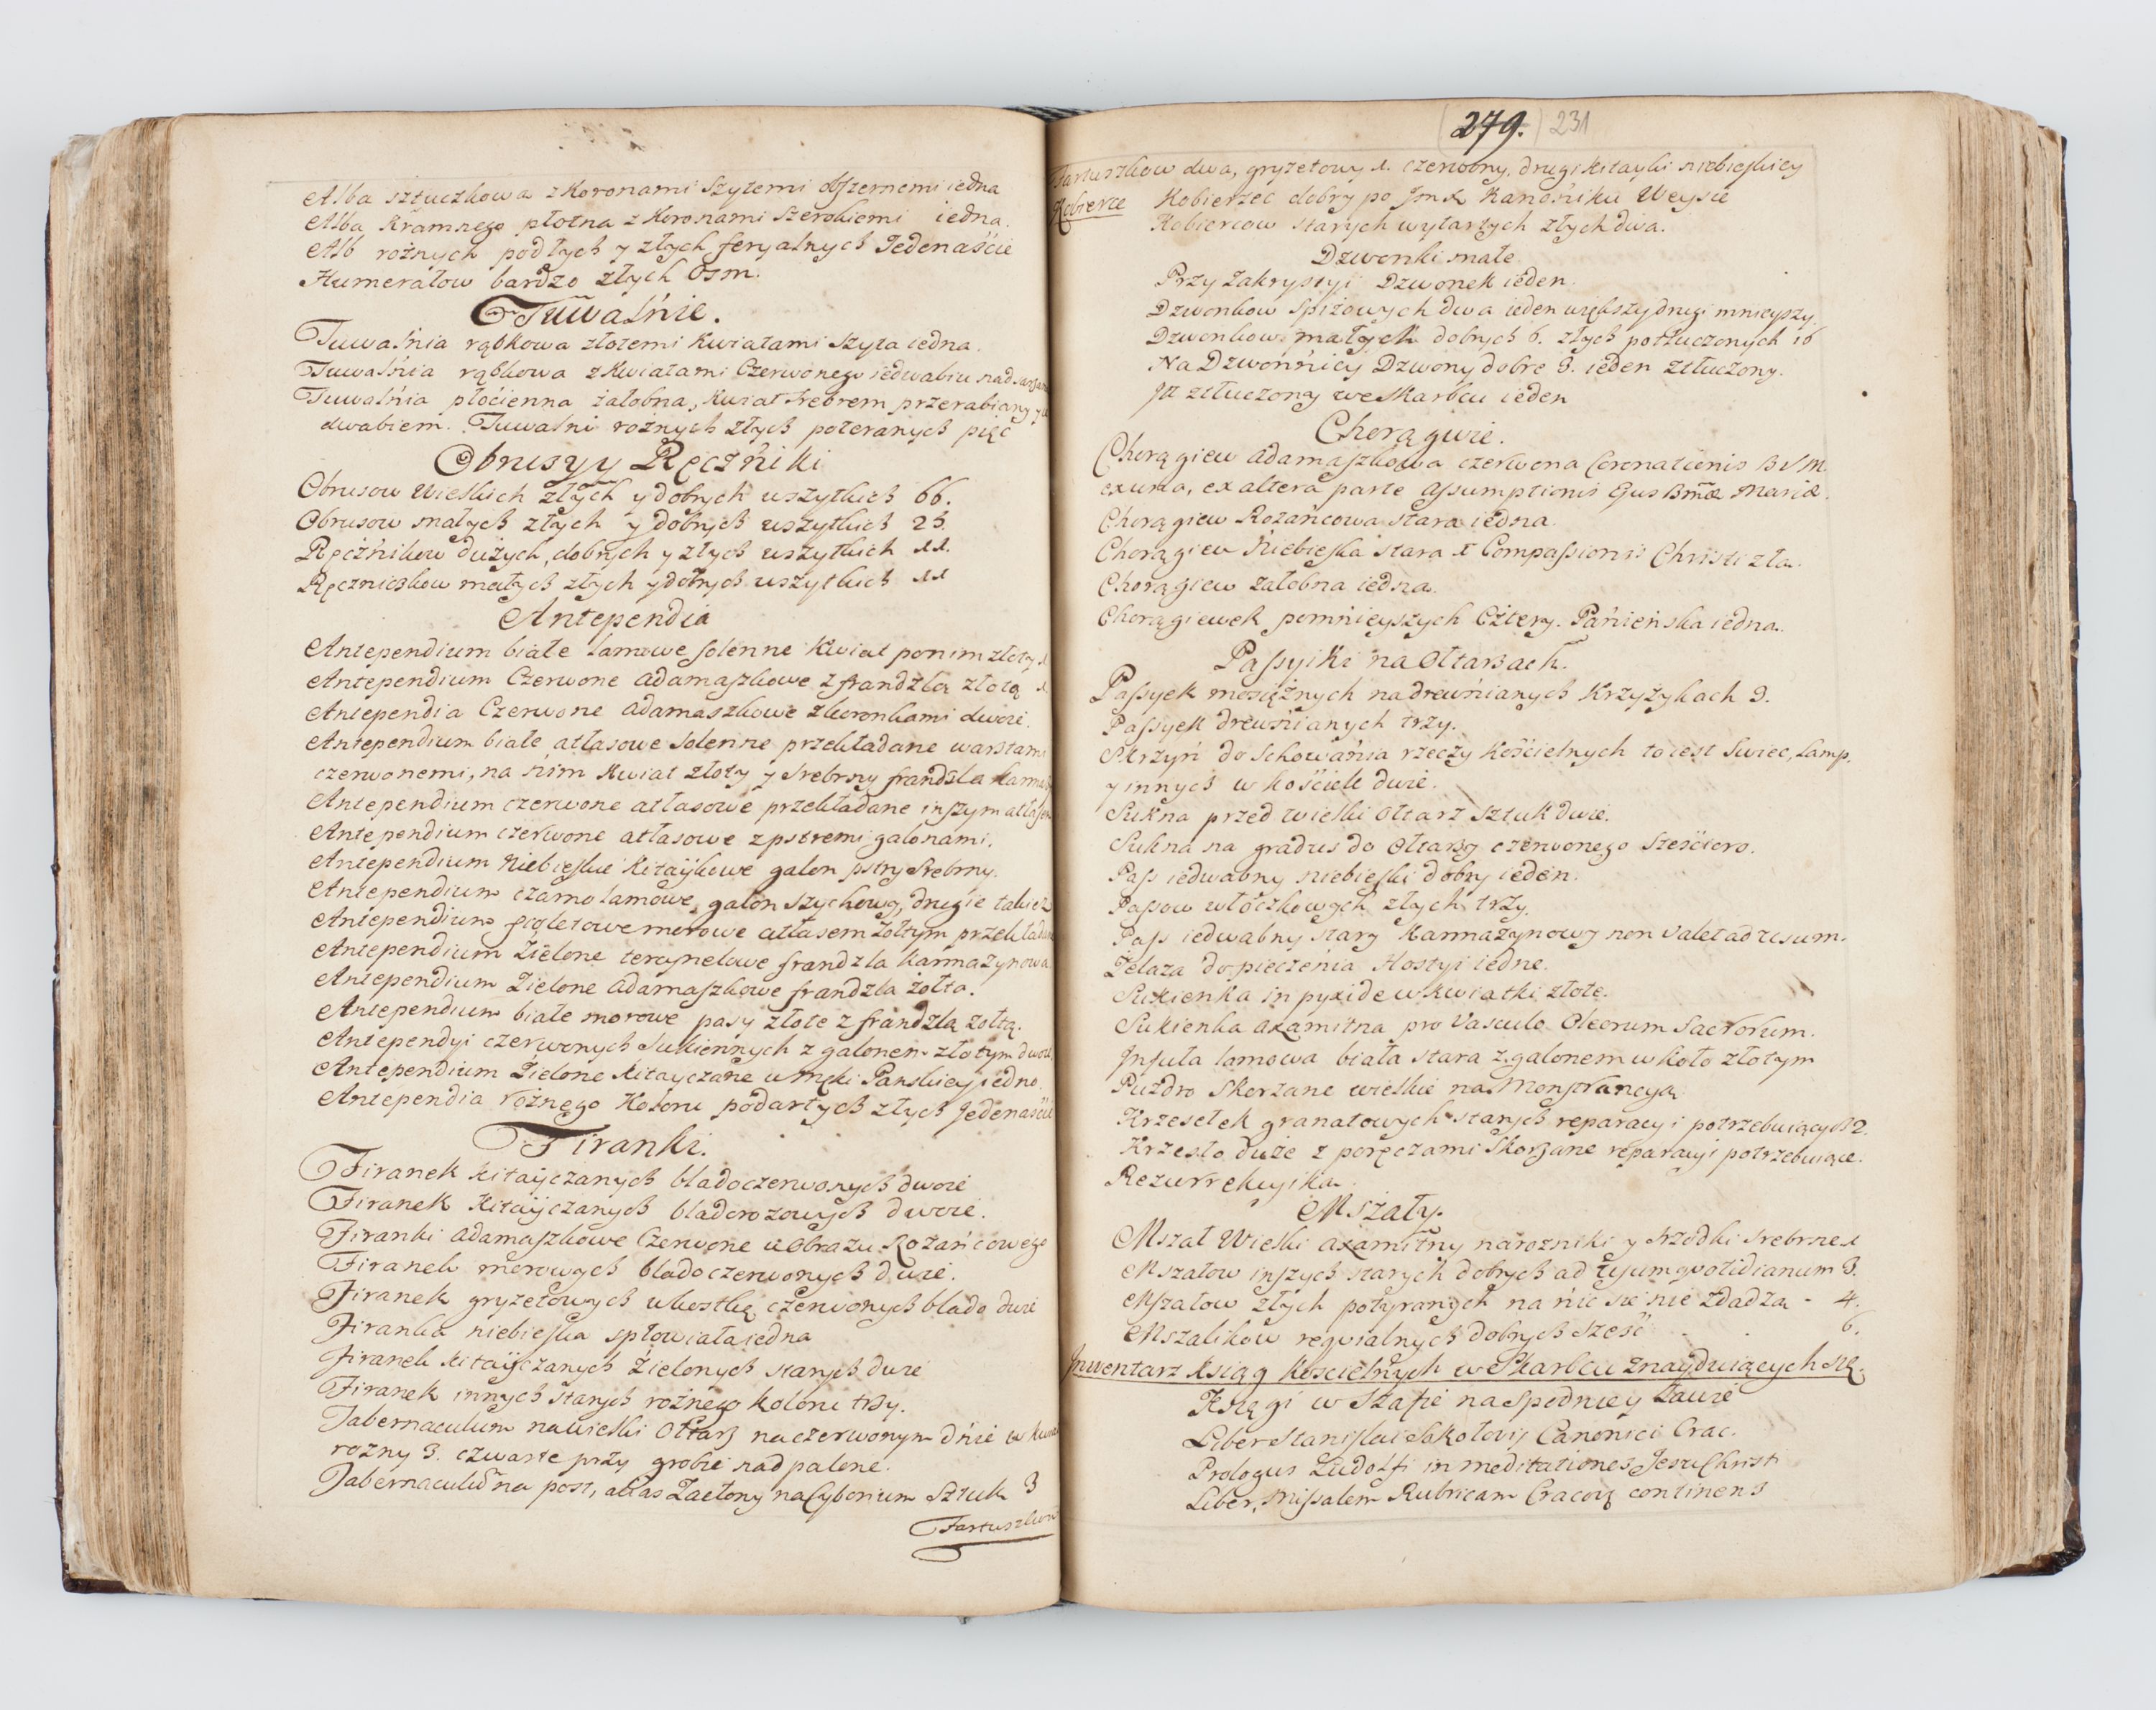 Alba sztuczkowa z Koronami Szytemi obszernemi iedna
Alba Kramnego płotna z Koronami Szerokiemi iedna.
Alb rożnych podłych y złych feryalnych Jedenaście
Humerałow bardzo złych Osm.
Tuwalnie.
Tuwalnia rąbkowa złotemi Kwiatami Szyta iedna.
Tuwalnia rąbkowa z Kwiatami Czerwonego iedwabiu
Tuwalnia płocienna żałobna, Kwiat srebrem przerabiany y ie
dwabiem. Tuwalni rożnych złych poteranych pięć
Obrusy y Ręczniki
Obrusow Wielkich złych y dobrych wszytkich 66.
Obrusow małych złych y dobrych wszytkich 23.
Ręcznikow dużych, dobrych y złych wszytkich 11.
Ręczniczkow małych złych y dobrych wszytkich 11
Antependia
Antependium białe lamowe solenne Kwiat ponim złoty 1
Antependium Czerwone adamaszkowe z frandzlą złotą 1
Antependia Czerwone adamaszkowe z koronkami dwoie.
Antependium białe atłasowe solenne przekładane warstami
czerwonemi, na nim Kwiat złoty y srebrny frandzla
Antependium czerwone atłasowe przekładane inszym atłasem
Antependium czerwone atłasowe z pstremi galonami.
Antependium Niebieskie Kitaykowe galon pstry srebrny.
Antependium czarno lamowe, galon szychowy, drugie takież
Antependium fioletowe morowe atłasem żołtym przekładane
Antependium Zielone tercynelowe frandzla karmazynowa
Antependium Zielone adamaszkowe frandzla żołta.
Antependium białe morowe pasy złote z frandzlą żołtą.
Antependyi czerwonych Sukiennych z galonem złotym dwoie.
Antependium Zielone kitayczane u Męki Panskiey iedno.
Antependia rożnego Koloru podartych złych Jedenaście
Firanki.
Firanek kitayczanych bladoczerwonych dwoie
Firanek Kitayczanych bladorozowych dwoie.
Firanki adamaszkowe Czerwone u Obrazu Rożańcowego
Firanek morowych bladoczerwonych dwie.
Firanek gryzetowych w kostkę czerwonych blado dwie
Firanka niebieska spłowiała iedna
Firanek kitayczanych Zielonych starych dwie
Firanek innych starych rożnego koloru trzy.
Tabernaculum na wielki Ołtarz na czerwonym dnie w
rożny 3. czwarte przy grobie nadpalone.
Tabernaculum na post, alias Zasłony na Cyborium Sztuk 3
Fartuszkow
279. (231)
Fartuszkow dwa, gryzetowy 1. czerwony, drugi kitayki niebieskiey
Kobierce Kobierzec dobry po Jmx Kanoniku Weysie
Kobiercow starych wytartych złych dwa.
Dzwonki małe
Przy Zakrystyi Dzwonek ieden.
Dzwonkow Spiżowych dwa ieden większy drugi mnieyszy.
Dzwonkow małych dobrych 6. złych potłuczonych 16
Na Dzwonnicy Dzwony dobre 3. ieden ztłuczony.
It ztłuczony we Skarbcu ieden
Chorągwie.
Chorągiew adamaszkowa czerwona Coronationis BVM.
ex una, ex altera parte Assumptionis Ejus Bmæ Mariæ.
Chorągiew Rożańcowa stara iedna.
Chorągiew Niebieska stara 1 Compassionis Christi zła.
Chorągiew żałobna iedna.
Chorągiewek pomnieyszych Cztery. Panieńska iedna.
Passyiki na Ołtarzach.
Passyek mosiężnych na drewnianych Krzyżykach 9.
Passyek drewnianych trzy.
Skrzyń do Schowania rzeczy Kościelnych to iest Swiec, Lamp,
y innych w kościele dwie.
Sukna przed wielki Ołtarz sztuk dwie.
Sukna na gradus do Ołtarzy czerwonego Sześcioro.
Pass iedwabny niebieski dobry ieden.
Passow włoczkowych złych trzy.
Pass iedwabny stary Karmazynowy non valet ad usum.
Żelaza do pieczenia Hostyi iedne.
Sukienka in pyxide w kwiatki złote.
Sukienka axamitna pro Vasculo Oleorum Sacrorum.
Infuła lamowa biała stara z galonem w koło złotym
Puzdro Skorzane wielkie na Monstrancyą
Krzesełek granatowych starych reparacyi potrzebuiących 2.
Krzesło duże z poręczami Skorzane reparacyi potrzebuiące.
Rezurrekcyika.
Mszały.
Mszał Wielki axamitny narożniki y szrodki srebrne 1
Mszałow inszych starych dobrych ad usum quotidianum 3.
Mszałow złych potyranych na nic sie nie zdadzą - 4.
Mszalikow requialnych dobrych sześć 6.
Inwentarz Ksiąg Kościelnych w Skarbcu znayduiących się.
Księgi w Szafie na Spodniey Ławie
Liber Stanislai Sokolovij Canonici Crac.
Prologus Ludolfi in meditationes Jesu Christi
Liber, Missalem Rubricam Cracov. continens